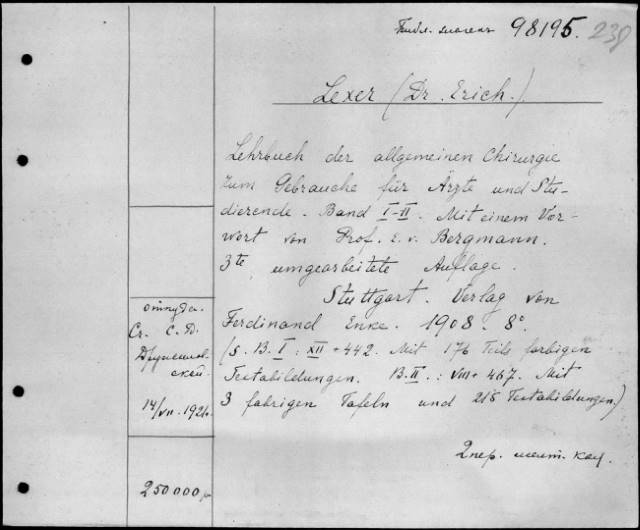 98195. 239
Lexer (Dr. Erich.)
Lehrbuch der allgemeinen Chirurgie
zum Gebrauche für Ärzte und Stu-
dierende. Band I-II. Mit einem Vor-
wort von Prof. E. v. Bergmann.
3te umgearbeitete Auflage.
Stuttgart. Verlag von
Ferdinand Enke. 1908. 8°
(s. B. I : XII + 442. Mit 176 Teils farbigen
Textabildungen. B. II. : VIII + 467. Mit
3 fabrigen Tafeln und 218 Textabildungen.)
2 пер.
откуда.
Ст. С. Д.
14/VII. 192
250000